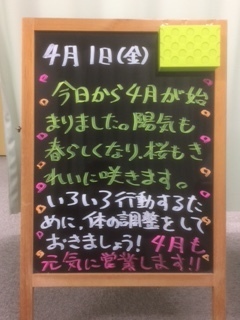 4月1日(金)
今日から4月が始
まりました。陽気も
春らしくなり、桜もき
れいに咲きます。
いろいろ行動するた
めに、体の調整をして
おきましょう！4月も
元気に営業します!!